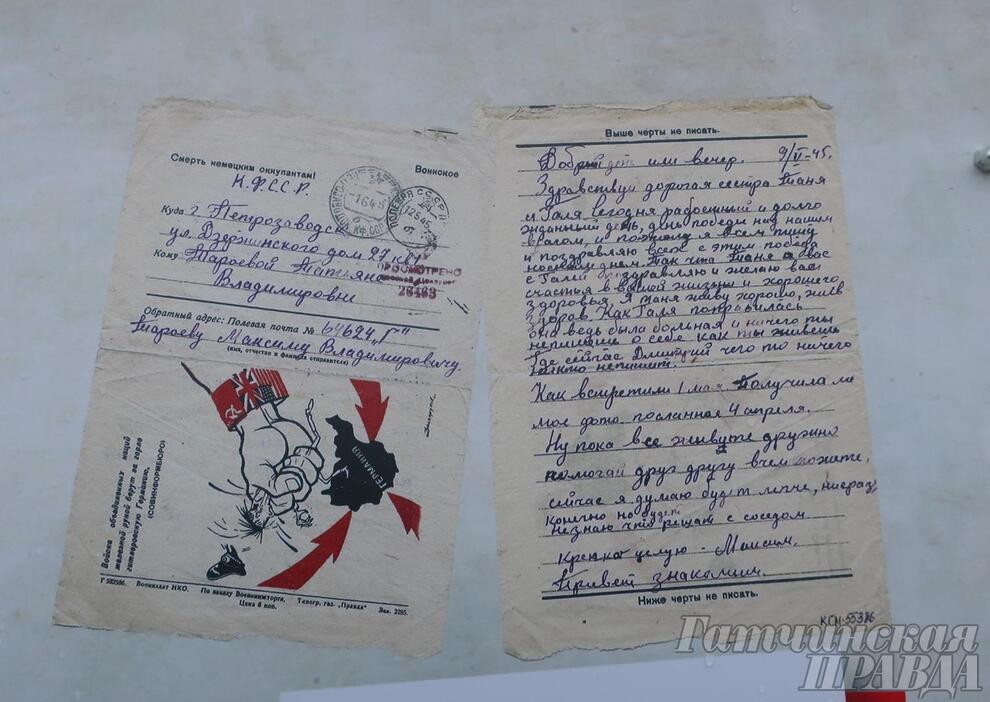 Смерть немецким оккупантам!
Воинское
К.Ф.С.С.Р.
Куда г. Петрозаводск
ул. Дзержинского дом 27 кв
Кому Тароевой Татьяне
Владимировне
ПРОСМОТРЕНО
26483
Обратный адрес: Полевая почта № 64624 „Г"
Тароеву Максиму Владимировичу.
(имя, отчество и фамилия отправителя)
ГЕРМАНИЯ
Войска объединенных наций
железной рукой берут за горло
гитлеровскую Германию.
(СОВИНФОРМБЮРО)
Г 582586. Воениздат НКО. По заказу Военкнижторга. Типогр. газ. „Правда" Зак. 2285.
Цена 8 коп.
Выше черты не писать.
Добрый день или вечер. 9/V-45.
Здравствуй дорогая сестра Таня
и Галя сегодня радостный и долго
жданный день, день победы над нашим
врагом, и поэтому я всем пишу
и поздравляю всех с этим победо
носным днем. Так что Таня и вас
с Галей поздравляю и желаю вам
счастья в вашей жизни и хорошего
здоровья. Я Таня живу хорошо, жив
здоров. Как Галя поправилась
она ведь была больная и ничего ты
непишешь о себе как ты живешь
Где сейчас Дмитрий чего то ничего
никто непишет.
Как встретили 1 мая Получила ли
мое фото посланное 4 апреля.
Ну пока все живите дружно
помогай друг другу вчем можете,
сейчас я думаю будет легче, несразу
конечно но будет
незнаю что решат с соседом.
Крепко целую - Максим.
Привет знакомим.
Ниже черты не писать.
КГМ-55386
Гатчинская
ПРАВДА